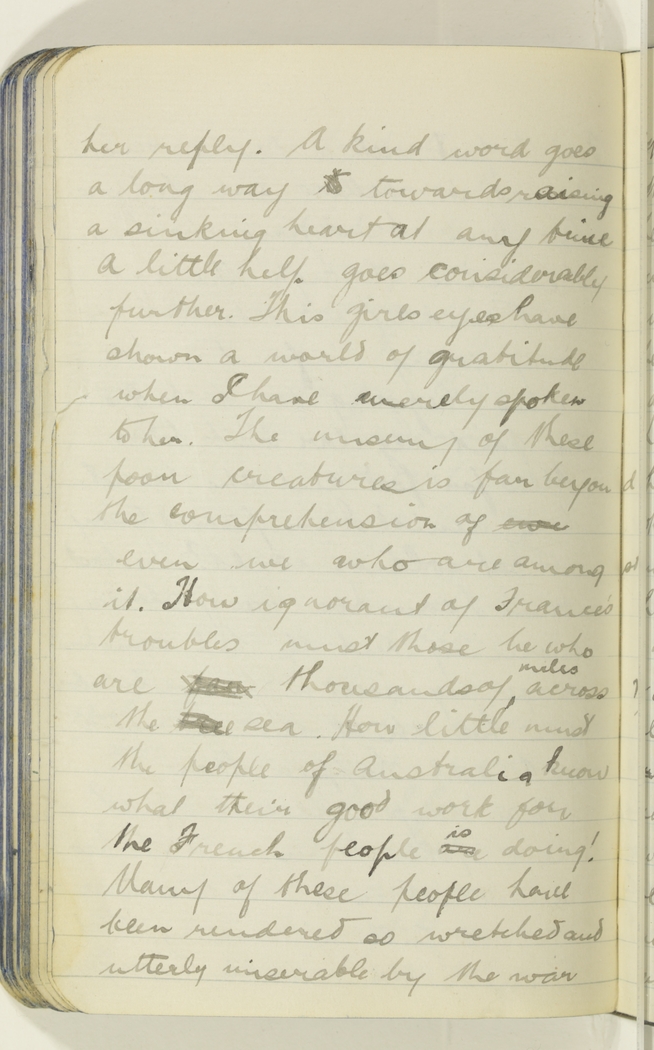 her reply. A kind word goes
a long way to towards raising
a sinking heart at any time
a little help goes considerably
further. This girls eyes have
shown a world of gratitude
when I have merely spoken
to her. The misery of these
poor creatures is far beyond
the comprehension of
even we who are amongst
it. How ignorant of France's
troubles must those be who
are far thousands of miles across
the sea. How little must
the people of Australia know
what their good work for
the French people are is doing!
Many of these people have
been rendered so wretched and
utterly miserable by the war